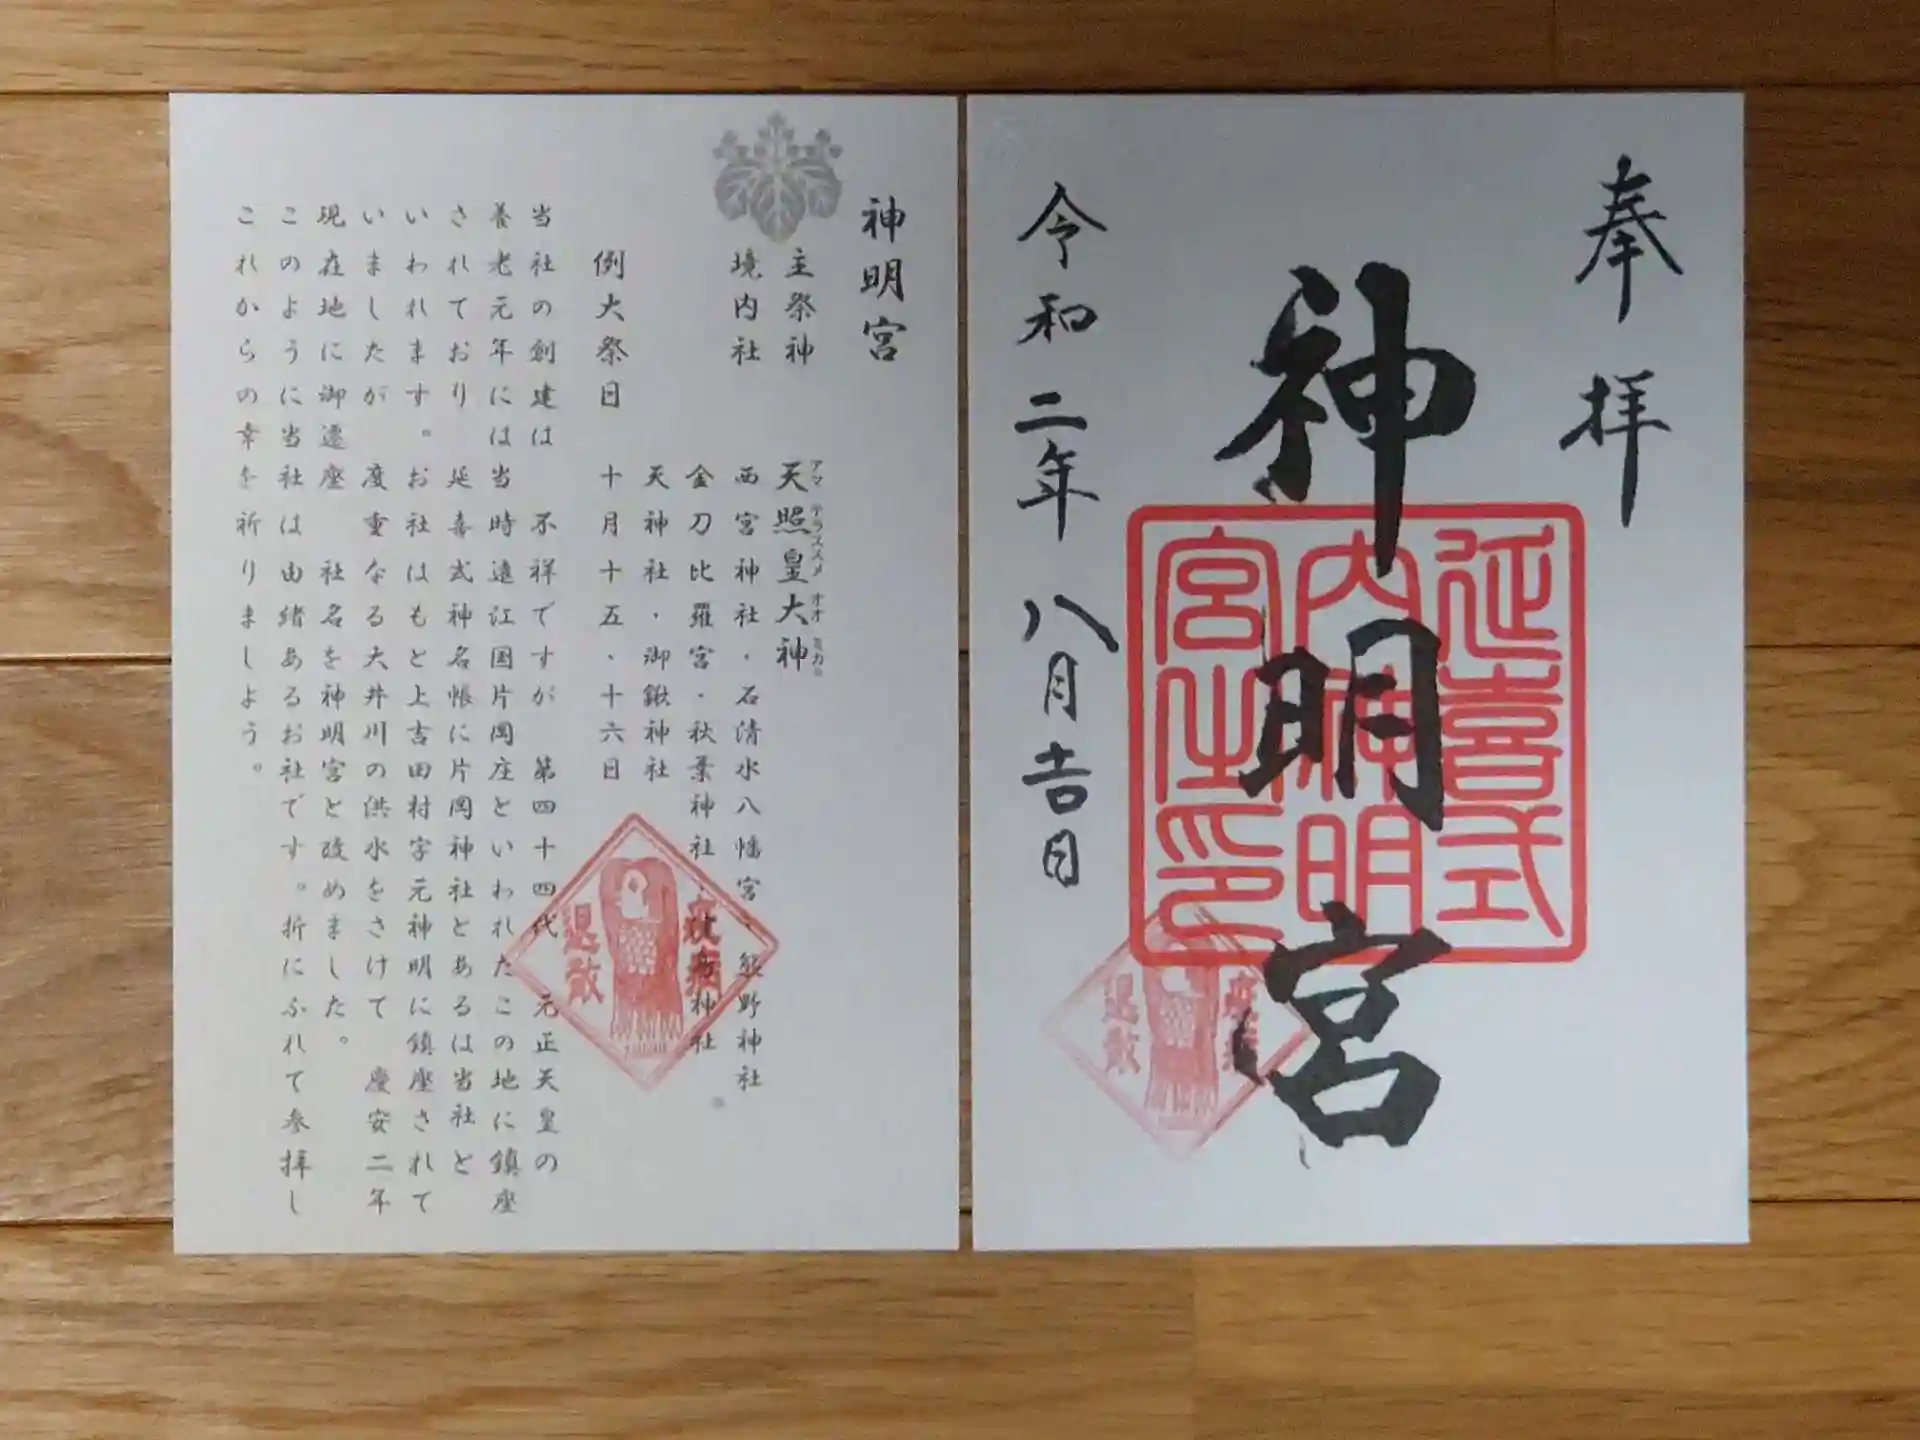 奉拝
神明宮
延喜式
内神明
宮之印
令和二年八月吉日
疫病
退散
神明宮
主祭神 天照皇大神
アマ テラススメ オオ ミカミ
境内社 西宮神社・石清水八幡宮・熊野神社
金刀比羅宮・秋葉神社・神社
天神社・御鍬神社
例大祭日 十月十五・十六日
疫病
退散
当社の創建は 不祥ですが 第四十四代 元正天皇の
養老元年には当時遠江国片岡庄といわれたこの地に鎮座
されており 延喜式神名帳に片岡神社とあるは当社と
いわれます。お社はもと上吉田村字元神明に鎮座されて
いましたが 度重なる大井川の洪水をさけて 慶安二年
現在地に御遷座 社名を神明宮と改めました。
このように当社は由緒あるお社です。折にふれて参拝し
これからの幸を祈りましょう。